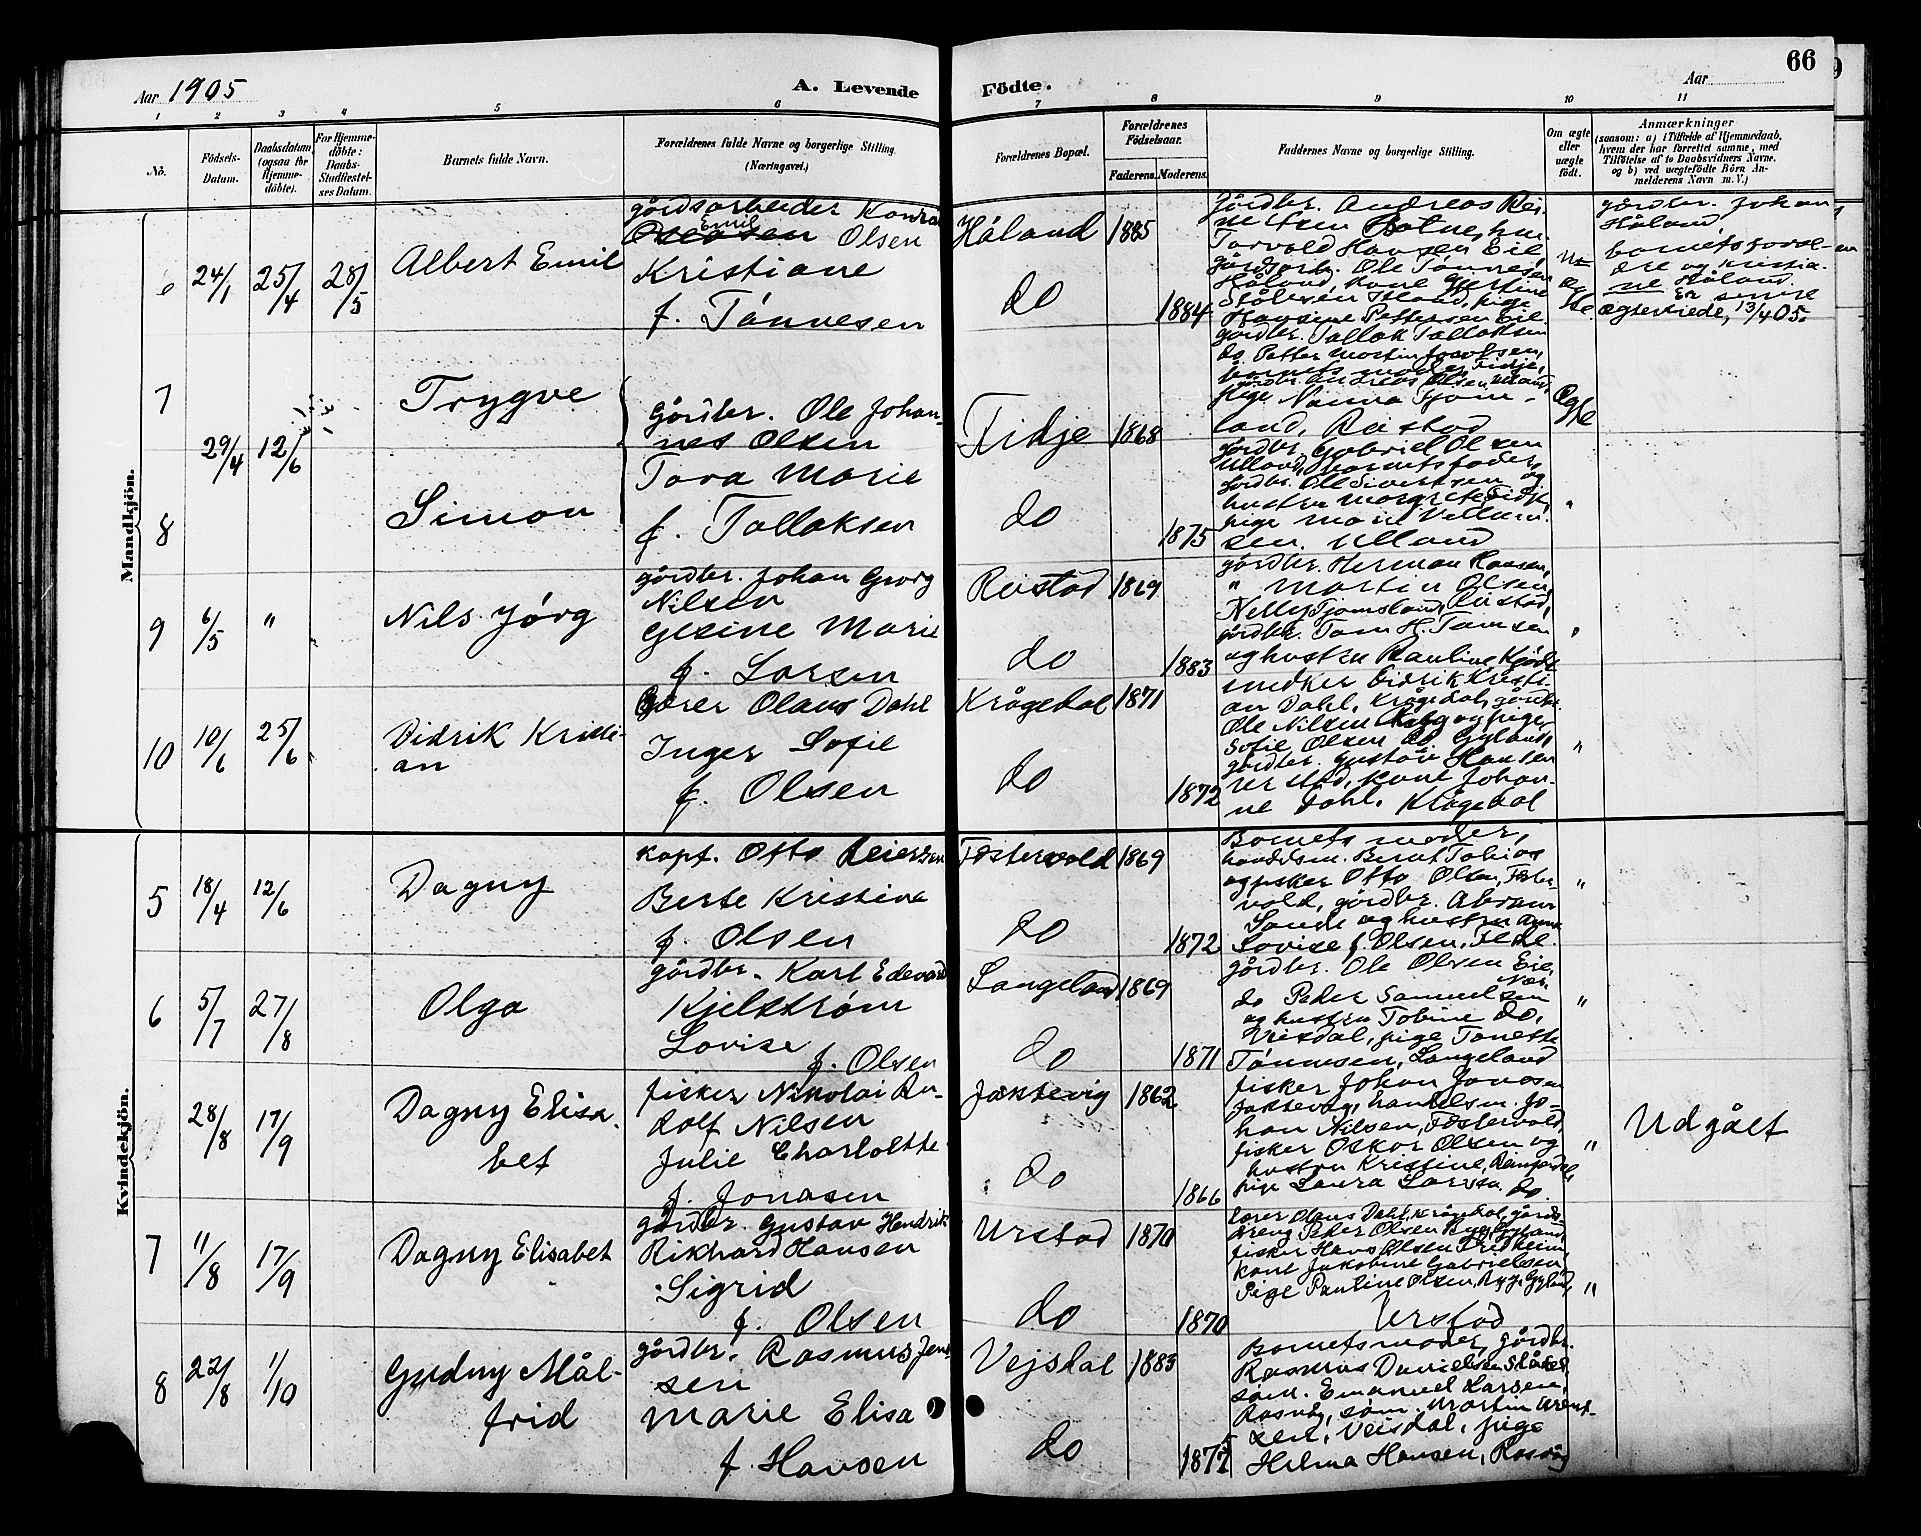 Aar 1905
A. Levende
Födte.
Aar
66
1 2 3 4 5 6 7 8 9 10 11
No.
Födsels-Datum.
Daabsdatum (ogsaa for Hjemme-döbte).
For Hjemme-döbte: Daabs-Stadfæstel-ses Datum.
Barnets fulde Navn.
Forældrenes fulde Navne og borgerlige Stilling. (Næringsvei.)
Forældrenes Bopæl.
Forældrenes Födselsaar.
Faderens. Moderens.
Faddernes Navne og borgerlige Stilling.
Om ægte eller uægte födt.
Anmærkninger
(saasom: a) i Tilfælde af Hjemmedaab, hvem der har forrettet samme, med Tilföielse af to Daabsvidners Navne, og b) ved uægtefödte Börn An-melderens Navn m. V.)
Mandkjön.
6 24/1 25/4 28/5
Albert Emil
gårdsarbeider Konrad
Emil Olsen
Kristiane
f. Tönnesen
Håland 1885
do 1884
gårdbr. Andreas Rei-
Torvald Hansen Eie
gårdsarb. Ole Tønnesen
Håland, kone Gjertine
Hansine Pettersen Eie
U-
æg
te
gårdbr. Johan
Håland,
barnets foræl-
dre og Kristia-
ne Håland.
En senere
ægteviede, 13/4 05.
7
Trygve
29/4 12/6
gårdbr. Ole Johan-
nes Olsen
Tora Marie
f. Tallaksen
Fidje 1868
do 1875
gårdbr. Tallak Tallaksen
do. Petter Martin Jacobsen,
barnets moder, Fidje,
gårdbr. Andreas Olsen Ulland,
pige Nanna Tjoms-
land, Rästad
Æg
te
8
Simon
gårdbr. Gabriel Olsen
Ulland, barnets fader,
gårdbr. Ole Sivertsen og
hustru Margrete Fidje,
pige Marie Vellum-
sen. Ulland
"
9 6/5 "
Nils Jörg
gårdbr. Johan Georg
Nilsen
Gesine Marie
f. Larsen
Reistad 1869
do 1883
gårdbr. Herman Hansen,
" Martin Olsen,
Nelly Tjomsland, Rästad,
gårdbr. Tom H. Tomsen
og hustru Pauline
"
10 10/6 25/6
Didrik Kristi-
an
lærer Olaus Dahl
Inger Sofie
f. Olsen
Krågedal 1871
do 1872
snedker Didrik Kristi-
an Dahl, Krågedal, gårdbr.
Ole Nilsen Ryg og pige
Sofie Olsen do Gyland,
gårdbr. Gustav Hansen
Urstad, kone Johan-
ne Dahl, Krågedal
"
Kvindekjön.
5 18/4 12/6
Dagny
kapt. Otto Reiersen
Berte Kristine
f. Olsen
Föstervold 1869
do 1872
Barnets moder,
handelsm. Bernt Tobias
og fisker Otto Olsen, Föster-
vold, gårdbr. Abram
Sande og hustru Anna
Lovise f. Olsen, Fede.
"
6 5/7 27/8
Olga
gårdbr. Karl Edevard
Kjelström
Lovise
f. Olsen
Langeland 1869
do 1871
gårdbr. Ole Olsen Eie,
do Peder Samuelsen
og hustru Tobine do,
Veisdal, pige Tonette
Tönnesen, Langeland
"
28/8 17/9
Dagny Elisa-
bet
fisker Nikolai Ru-
dolf Nilsen
Julie Charlotte
f. Jonasen
Jaktevig 1862
do 1866
fisker Johan Jonasen
Jaktevåg, handelsm. Jo-
han Nilsen, Föstervold,
fisker Oskar Olsen og
hustru Kristine,
pige Laura Larsen do.
"
Udgået
7 11/8 17/9
Dagny Elisabet
gårdbr. Gustav Hendrik
Rikhard Hansen
Sigrid
f. Olsen
Urstad 1870
do 1870
lærer Olaus Dahl, Krågedal, gårds-
dreng Peder Olsen Ryg, Gyland,
fisker Hans Olsen Fridheim,
kone Jakobine Gabrielsen,
Pige Pauline Olsen, Ryg, Gyland,
Urstad
"
8 22/8 1/10
Gudny Mål-
frid
gårdbr. Rasmus Jen-
sen
Marie Elisa
f. Hansen
Vejsdal 1883
do 1877
Barnets moder, gårdbr.
Rasmus Danielsen
søm. Emanuel Larsen,
Rasvåg, søm. Martin Arent-
sen, Veisdal, pige
Helma Hansen, Rasvåg